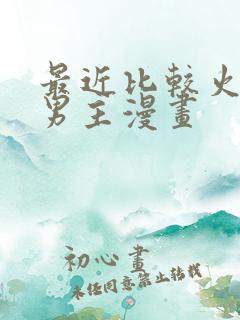 最近比较火
男主漫畫
初心畫
未经同意禁止转载